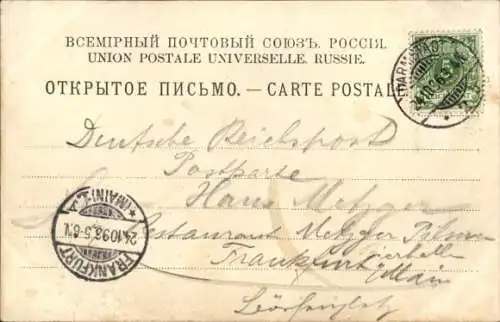 ВСЕМІРНЫЙ ПОЧТОВЫЙ СОЮЗЪ. РОССІЯ.
UNION POSTALE UNIVERSELLE. RUSSIE.
ОТКРЫТОЕ ПИСЬМО. — CARTE POSTALE
DARMSTADT
5
Deutsche Reichspost
Postkarte
Hans Metzger
Restaurant Metzger
Frankfurt
Main
FRANKFURT
* (MAIN) 1.